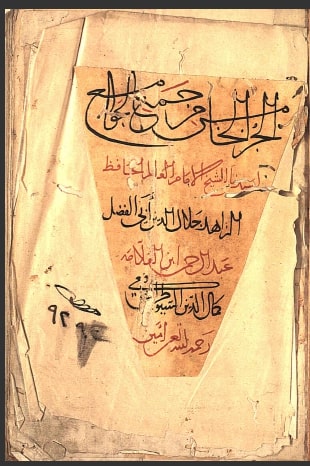 الجزء الخامس من جمع الجوامع
لسيدنا الشيخ الامام العالم الحافظ
الزاهد جلال الدين أبي الفضل
عبد الرحمن ابن العلامة
كمال الدين السيوطي
رحمه الله امين
٩٢